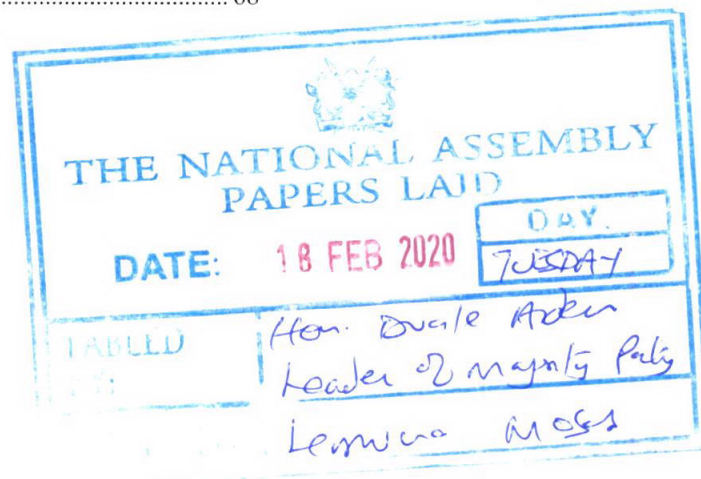 .................................... 68
THE NATIONAL ASSEMBLY
PAPERS LAID
DATE: 18 FEB 2020
DAY.
TUESDAY
TABLED
BY:
Hon. Duale Aden
Leader of Majority Party